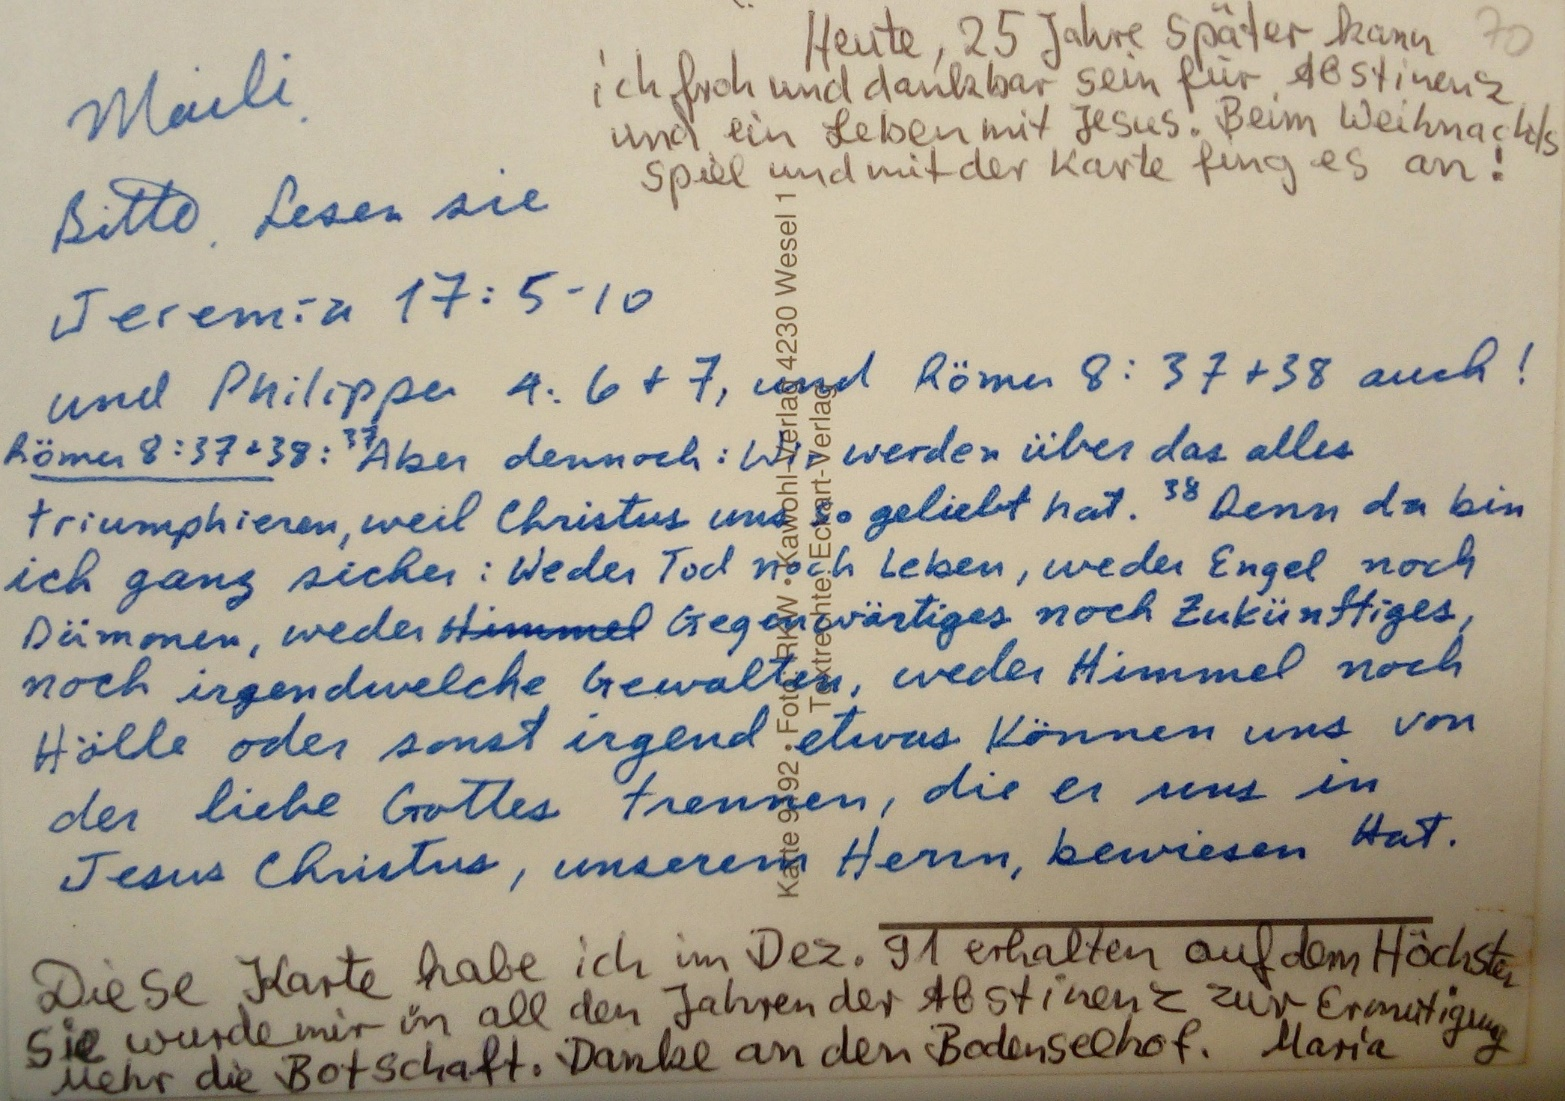 Heute, 25 Jahre später kann 70
ich froh und dankbar sein für Abstinenz
und ein Leben mit Jesus. Beim Weihnachts
spiel und mit der Karte fing es an!
Maili
Bitte, Lesen sie
Jeremia 17:5-10
und Philipper 4:6+7, und Römer 8:37+38 auch!
Römer 8:37+38: 37 Aber dennoch: Wir werden über das alles
triumphieren, weil Christus uns so geliebt hat. 38 Denn da bin
ich ganz sicher: Weder Tod noch Leben, weder Engel noch
Dämonen, weder Himmel Gegenwärtiges noch Zukünftiges,
noch irgendwelche Gewalten, weder Himmel noch
Hölle oder sonst irgend etwas Können uns von
der liebe Gottes trennen, die er uns in
Jesus Christus, unserem Herrn, bewiesen Hat.
Karte 9/92 • Foto: RKW • Kawohl-Verlag 4230 Wesel 1
Textrechte: Eckart-Verlag
Diese Karte habe ich im Dez. 91 erhalten auf dem Höchsten
Sie wurde mir in all den Jahren der Abstinenz zur Ermutigung
Mehr die Botschaft. Danke an den Bodenseehof. Maria